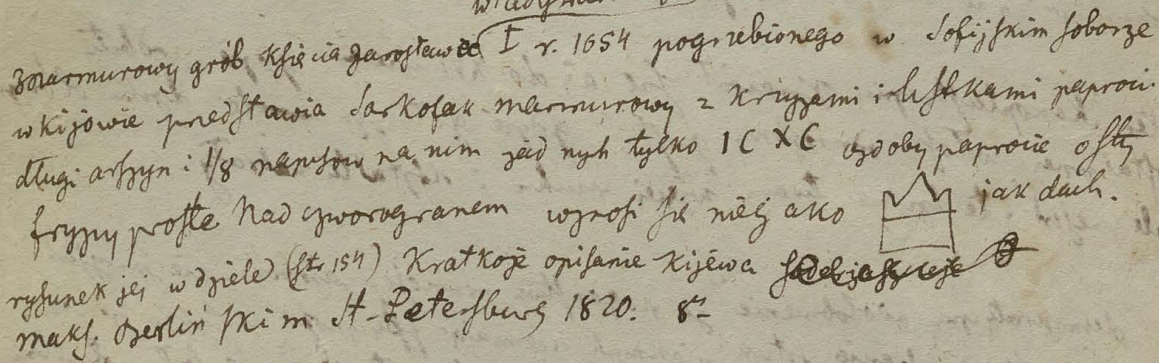 Władysław
marmurowy grób Księcia Jarosława I r. 1654 pogrzebionego w Sofijskim soborze
w Kijowie przedstawia Sarkofak marmurowy z krzyżami i listkami paproci.
długi arszyn i 1/8 napisów na nim żadnych tylko IC XC ozdoby paprocie osty
fryzy proste Nad czworogranem wznosi się niejako jak dach.
rysunek jej w dziele (str 154) Kratkoje opisanie Kijewa
maks. Berlinskim St. Petersburg 1820. 8°